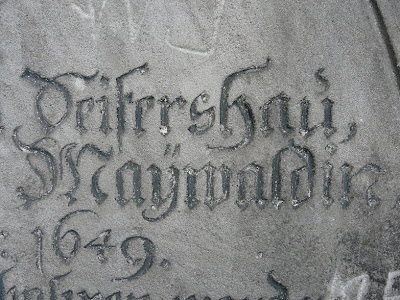 Seifershau,
Maÿwaldin,
: 1649.